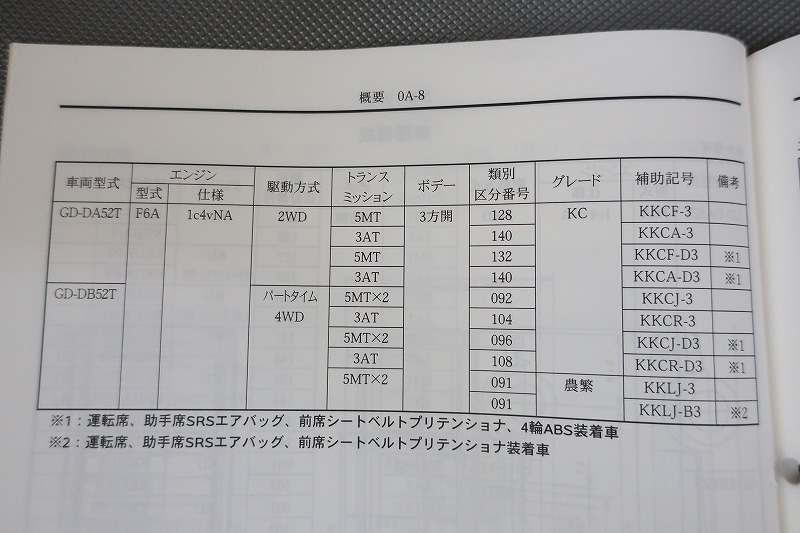 概要 0A-8
車両型式 エンジン 駆動方式 トランスミッション ボデー 類別区分番号 グレード 補助記号 備考
型式 仕様
GD-DA52T F6A 1c4vNA 2WD 5MT 3方開 128 KC KKCF-3
3AT 140 KKCA-3
5MT 132 KKCF-D3 ※1
3AT 140 KKCA-D3 ※1
GD-DB52T パートタイム 5MT×2 092 KKCJ-3
4WD 3AT 104 KKCR-3
5MT×2 096 KKCJ-D3 ※1
3AT 108 KKCR-D3 ※1
5MT×2 091 農繁 KKLJ-3
091 KKLJ-B3 ※2
※1：運転席、助手席SRSエアバッグ、前席シートベルトプリテンショナ、4輪ABS装着車
※2：運転席、助手席SRSエアバッグ、前席シートベルトプリテンショナ装着車